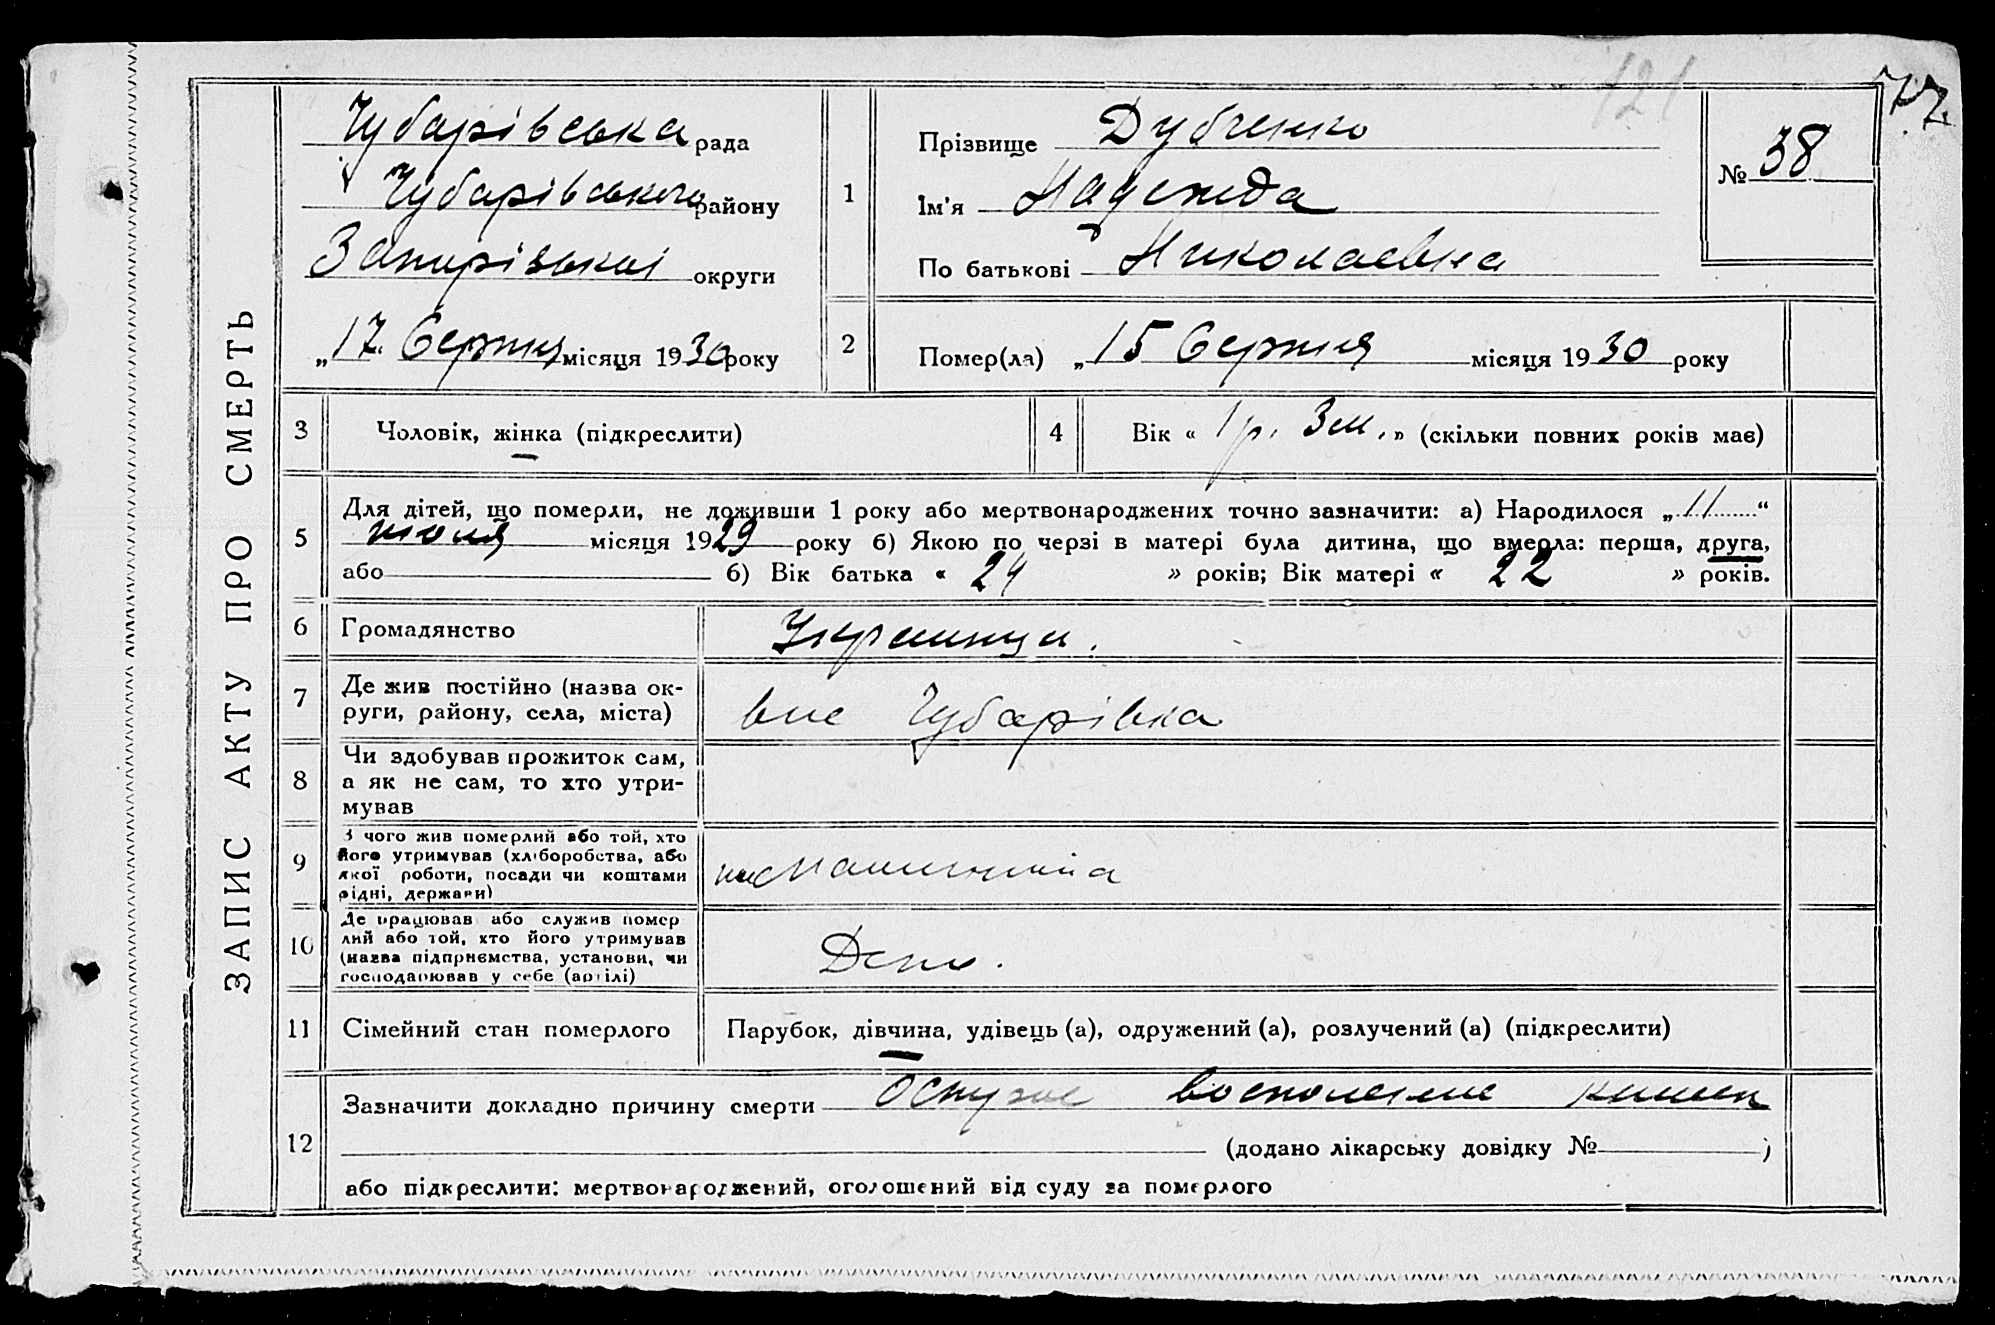 121
77
ЗАПИС АКТУ ПРО СМЕРТЬ
Чубарівська рада
Чубарівського району
Запорізької округи
„17 Серпня місяця 1930 року
1
Прізвище Дубченко
Ім'я Надежда
По батькові Николаевна
№ 38
2
Помер(ла) „15 Серпня місяця 1930 року
3
Чоловік, жінка (підкреслити)
4
Вік « 1 р. 3 м. » (скільки повних років має)
5
Для дітей, що померли, не доживши 1 року або мертвонароджених точно зазначити: а) Народилося „11“
місяця 1929 року б) Якою по черзі в матері була дитина, що вмерла: перша, друга,
або б) Вік батька « 24 » років; Вік матері « 22 » років.
6
Громадянство
Украинци.
7
Де жив постійно (назва ок-
руги, району, села, міста)
Чубарівка
8
Чи здобував прожиток сам,
а як не сам, то хто утри-
мував
9
З чого жив померлий або той, хто
його утримував (хліборобства, або
якої роботи, посади чи коштами
рідні, держави)
10
Де працював або служив помер
лий або той, хто його утримував
(назва підприємства, установи, чи
господарював у себе (артілі)
Депо.
11
Сімейний стан померлого
Парубок, дівчина, удівець (а), одружений (а), розлучений (а) (підкреслити)
12
Зазначити докладно причину смерти Острое восполение кишек
(додано лікарську довідку № )
або підкреслити: мертвонароджений, оголошений від суду за померлого